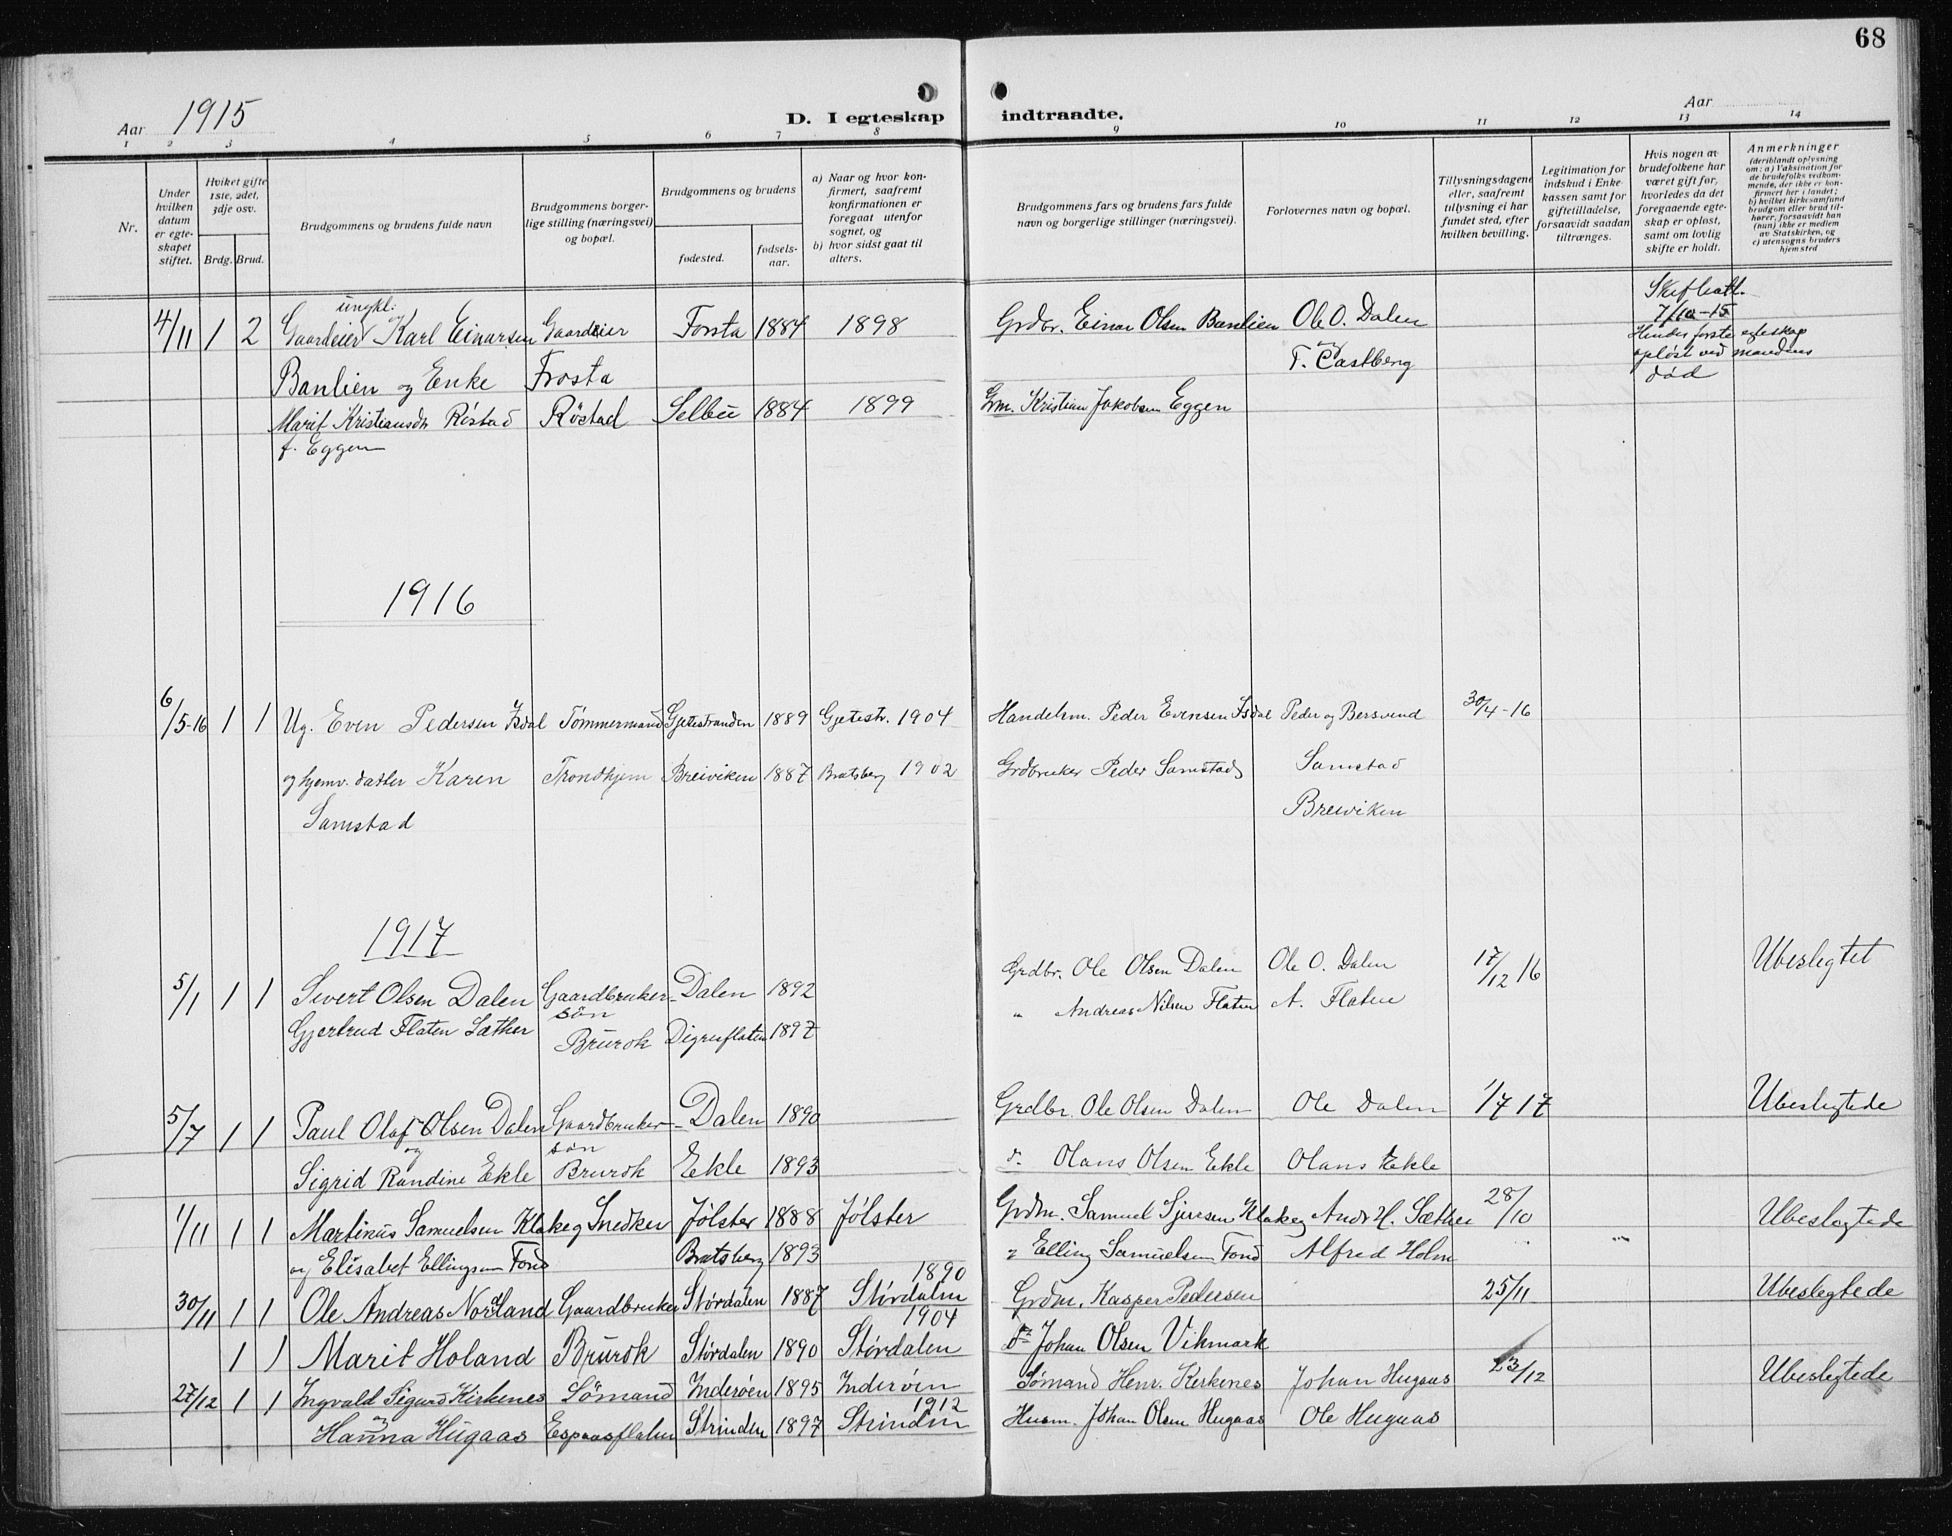 68
Aar 1915
D. I egteskap indtraadte.
Aar
1 2 3 4 5 6 7 8 9 10 11 12 13 14
Nr.
Under hvilken datum er egteskapet stiftet.
Hvilket gifte 1ste, 2det, 3dje osv.
Brdg. Brud.
Brudgommens og brudens fulde navn
Brudgommens borgerlige stilling (næringsvei) og bopæl.
Brudgommens og brudens
fødested.
fødselsaar.
a) Naar og hvor konfirmert, saafremt konfirmationen er foregaat utenfor sognet, og
b) hvor sidst gaat til alters.
Brudgommens fars og brudens fars fulde navn og borgerlige stillinger (næringsvei).
Forlovernes navn og bopæl.
Tillysningsdagene eller, saafremt tillysning ei har fundet sted, efter hvilken bevilling.
Legitimation for indskud i Enkekassen samt for giftetilladelse, forsaavidt saadan tiltrænges.
Hvis nogen av brudefolkene har været gift før, hvorledes da det foregaaende egteskap er opløst, samt om lovlig skifte er holdt.
Anmerkninger
(deriblandt oplysning om: a) Vaksination for de brudefolks vedkommende, der ikke er konfirmert her i landet; b) hvilket kirkesamfund brudgom eller brud tilhører, forsaavidt han (hun) ikke er medlem av Statskirken, og c) utensogns bruders hjemsted
4/11 1 2 ungkl. Gaardeier Karl Einarsen Gaardeier Forsta 1884 1898 Grdbr. Einar Olsen Banlien Ole O. Dalen
Banlien og Enke Frosta og T. Castberg
Marit Kristiansdt Röstad Röstad Selbu 1884 1899 Grm. Kristian Jakobsen Eggen
f. Eggen
7/10-15
Hendes forste egteskap
opløst ved mandens
död
1916
6/5-16 1 1 Ug. Even Pedersen Isdal Tömmermand Gjetestranden 1889 Gjetestr. 1904 Handelsm. Peder Evensen Isdal Peder og Bersvend 30/4-16
og hjemv. datter Karen Trondhjem Breiviken 1887 Bratsberg 1902 Grdbruker Peder Samstad Samstad
Samstad Breiviken
1917
5/1 1 1 Sivert Olsen Dalen Gaardbruker- Dalen 1892 Grdbr. Ole Olsen Dalen Ole O. Dalen 17/12 16 Ubeslegtet
sön
Gjertrud Flaten Sæther Brurok Digresflaten 1897 " Andreas Nilsen Flaten A. Flaten
5/7 1 1 Paul Olaf Olsen Dalen Gaardbruker- Dalen 1890 Grdbr. Ole Olsen Dalen Ole Dalen 1/7 17 Ubeslegtede
og sön
Sigrid Randine Ekle Brurok Ekle 1893 d. Olaus Olsen Ekle Olaus Ekle
1/11 1 1 Martinus Samuelsen Klakeg Snedker Jølster 1888 Jølster Grdm. Samuel Sjursen Klakeg Andr H. Sæther 28/10 Ubeslegtede
og Elisabet Ellingsen Fond Bratsberg 1893 " Elling Samuelsen Fond Alfred Holm
30/11 1 1 Ole Andreas Nordland Gaardbruker Stördalen 1887 1890 Stördalen Grdm. Kasper Pedersen 25/11 Ubeslegtede
1 1 Marit Holand Brurok Stördalen 1890 1904 Stördalen do Johan Olsen Vikmark
27/12 1 1 Ingvald Sigurd Kirkenes Sömand Inderøen 1895 Inderøen Sømand Henr. Kirkenes Johan Hugaas 23/12 Ubeslegtede
og Hanna Hugaas Espaasflaten Strinden 1897 1912 Strinden Husm. Johan Olsen Hugaas Ole Hugaas